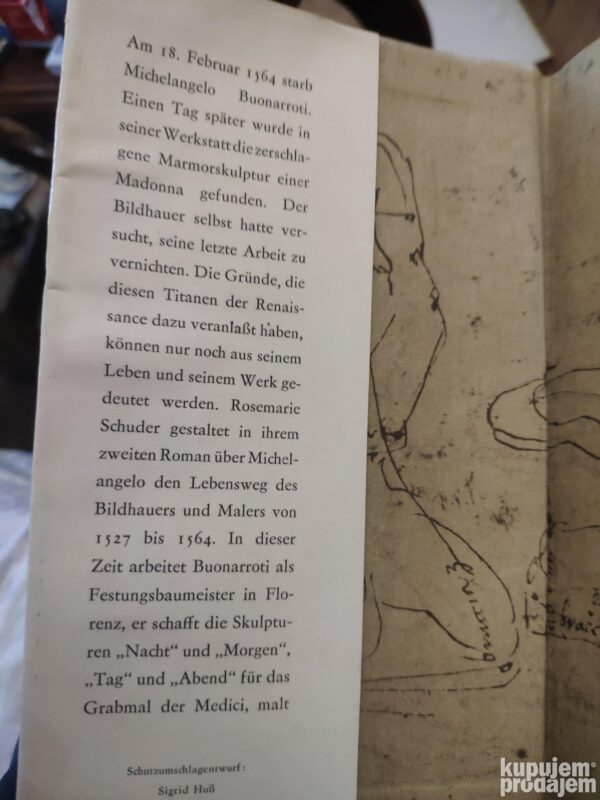 Am 18. Februar 1564 starb
Michelangelo Buonarroti.
Einen Tag später wurde in
seiner Werkstatt die zerschla-
gene Marmorskulptur einer
Madonna gefunden. Der
Bildhauer selbst hatte ver-
sucht, seine letzte Arbeit zu
vernichten. Die Gründe, die
diesen Titanen der Renais-
sance dazu veranlaßt haben,
können nur noch aus seinem
Leben und seinem Werk ge-
deutet werden. Rosemarie
Schuder gestaltet in ihrem
zweiten Roman über Michel-
angelo den Lebensweg des
Bildhauers und Malers von
1527 bis 1564. In dieser
Zeit arbeitet Buonarroti als
Festungsbaumeister in Flo-
renz, er schafft die Skulptu-
ren „Nacht“ und „Morgen“,
„Tag“ und „Abend“ für das
Grabmal der Medici, malt
Schutzumschlagentwurf:
Sigrid Huß
kupujem
prodajem